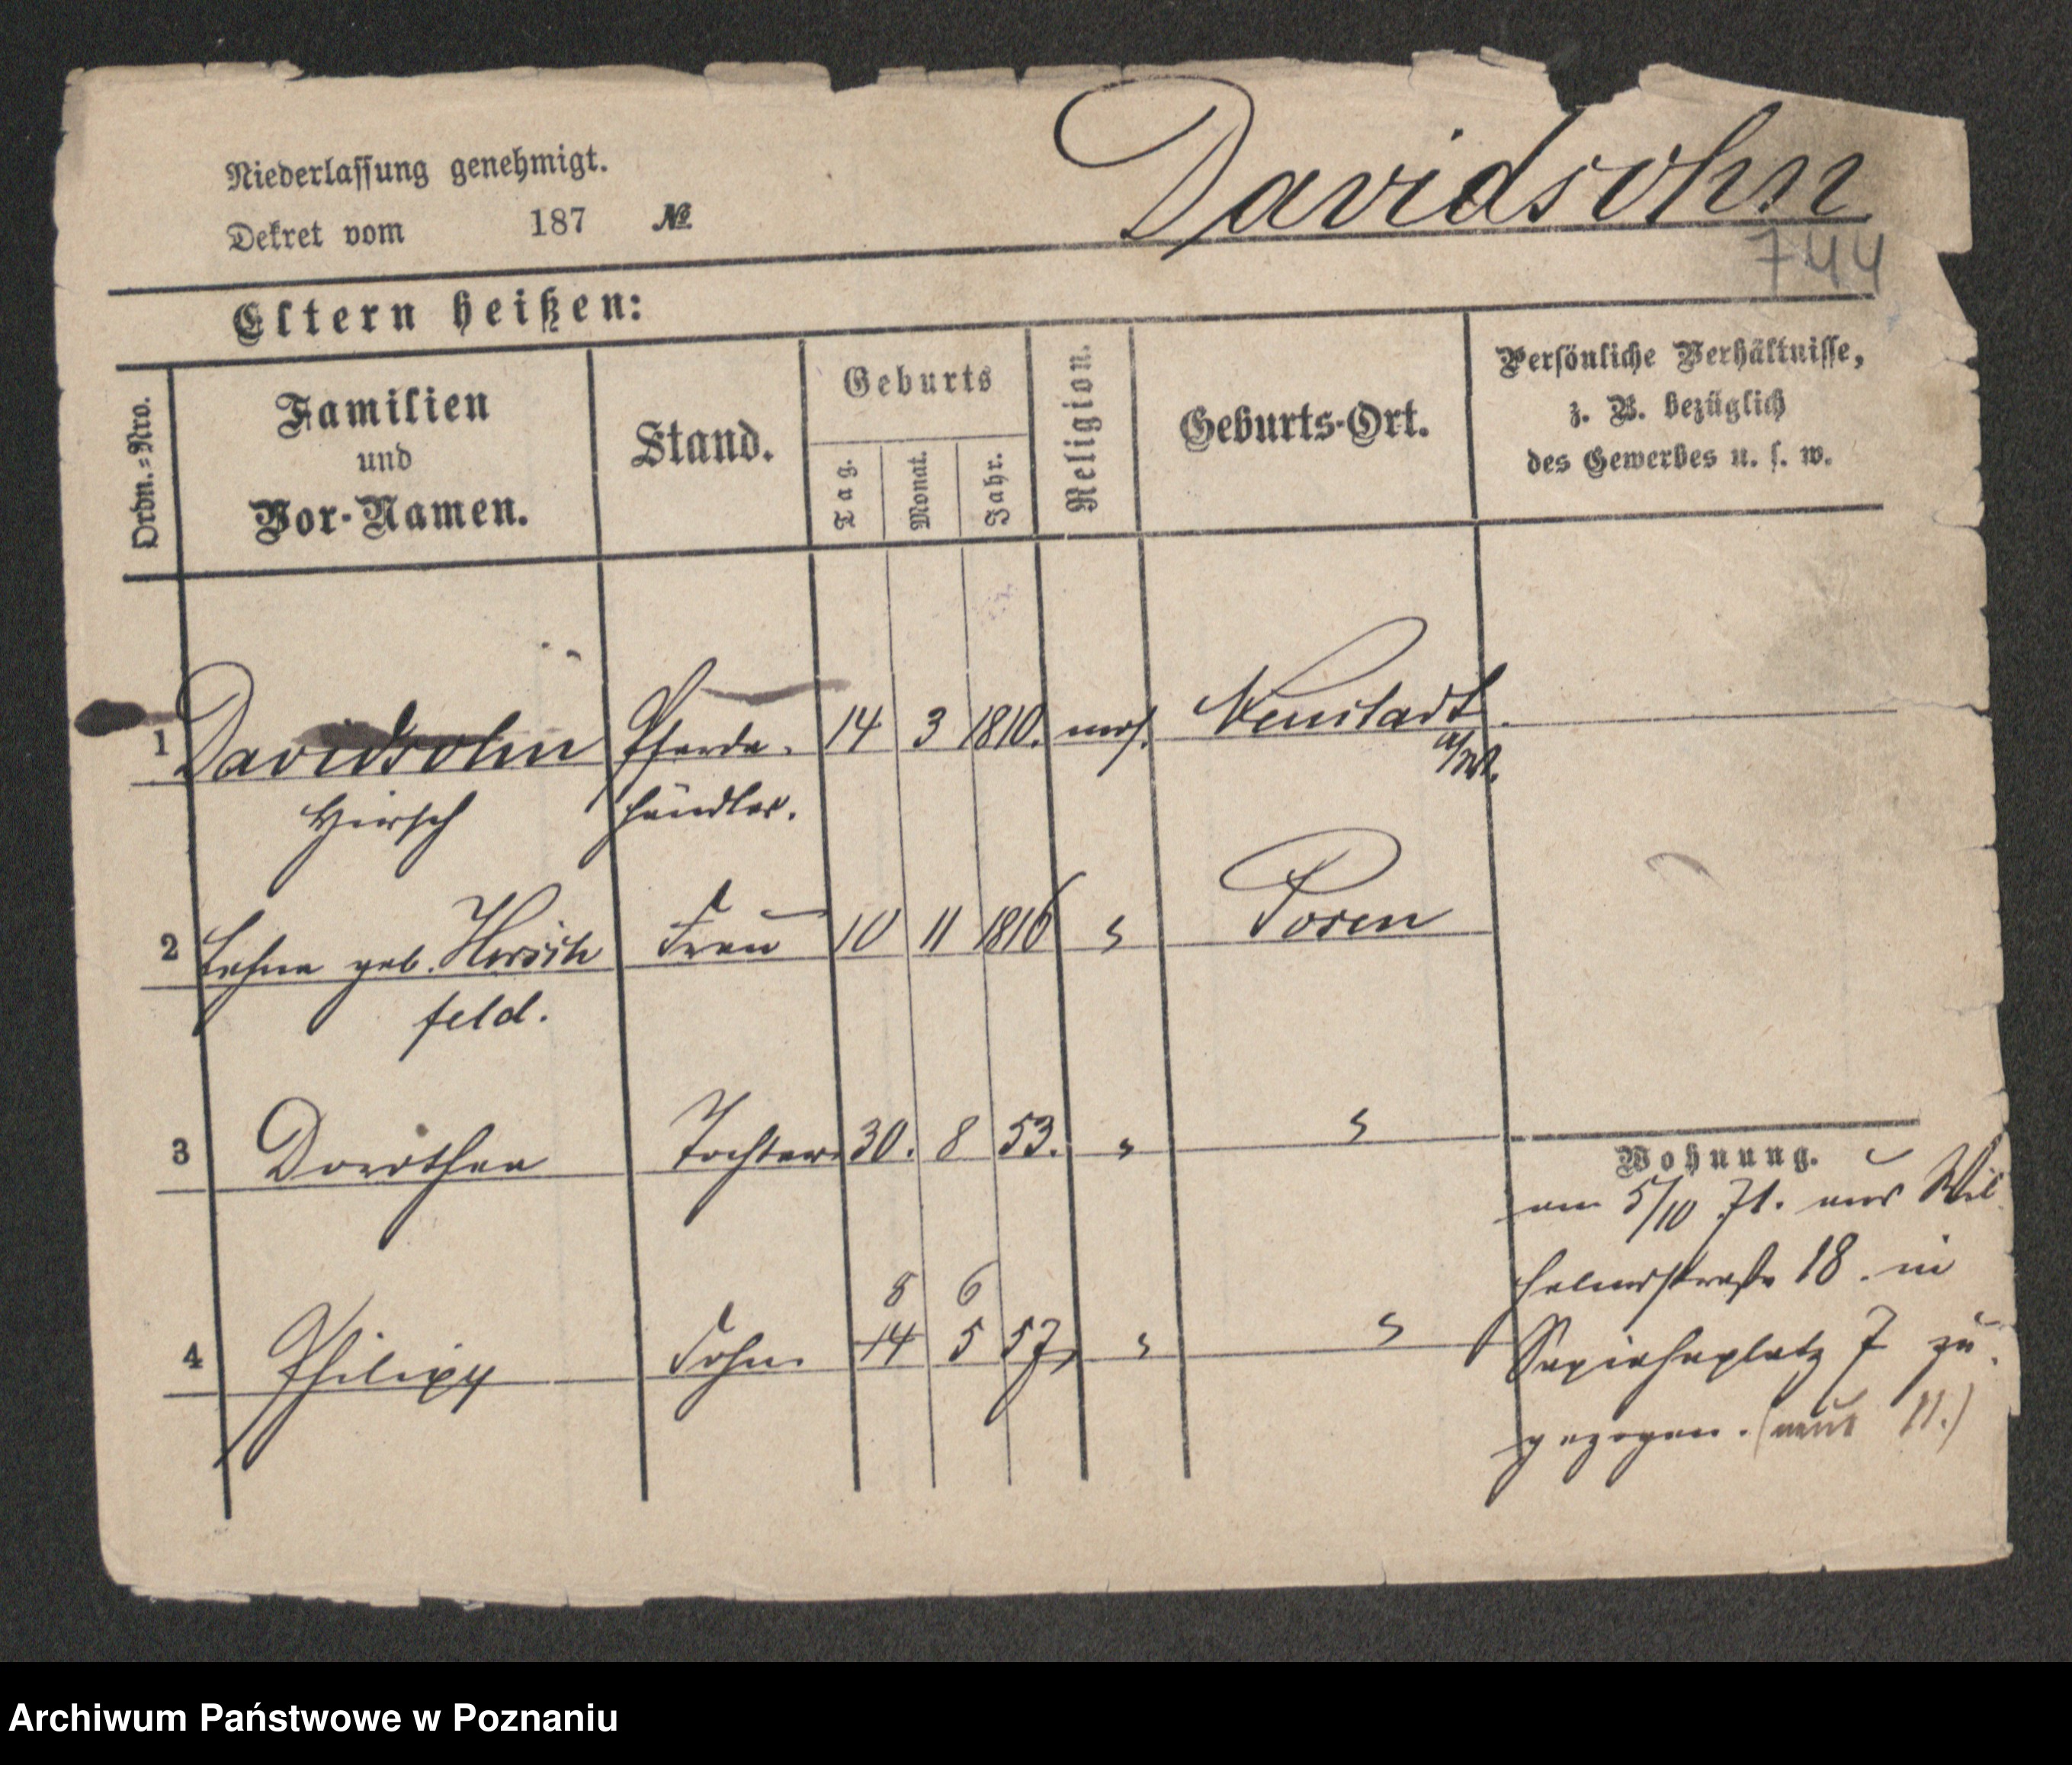 Niederlassung genehmigt.
Dekret vom 187 №
Davidsohn
744
Eltern heißen:
Ordn.=Nro.
Familien
und
Vor-Namen.
Stand.
Geburts
Tag.
Monat.
Jahr.
Religion.
Geburts-Ort.
Persönliche Verhältnisse,
z. B. bezüglich
des Gewerbes u. s. w.
1 Davidsohn Pferde- 14 3 1810. mos. Neustadt
a/W.
Hirsch händler.
2 geb. Hirsch Frau 10 11 1816 " Posen
feld.
3 Dorothea Tochter 30. 8 53. " "
8 6
4 Philipp Sohn 14 5 57, " "
Wohnung.
am 5/10 71. aus Wil
helmstraße 18. in
Sapiehaplatz 7 zu
gezogen. (neue 11.)
Archiwum Państwowe w Poznaniu